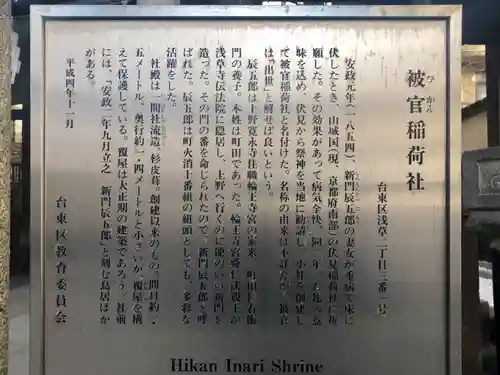 ひかん
被官稲荷社
台東区浅草二丁目三番一号
安政元年(一八五四)、新門辰五郎の妻女が重病で床に
伏したとき、山城国(現、京都府南部)の伏見稲荷社に祈
願した。その効果があって病気全快、同二年、お礼の意
味を込め、伏見から祭神を当地に勧請し、小社を創建し
て被官稲荷社と名付けた。名称の由来は不詳だが、被官
は「出世」と解せば良いという。
辰五郎は上野寛永寺住職輪王寺宮の家来、町田仁右衛
門の養子。本姓は町田であった。輪王寺宮舜仁法親王が
浅草寺伝法院に隠居し、上野へ行くのに便のいい新門を
造った。その門の番を命じられたので、新門辰五郎と呼
ばれた。辰五郎は町火消十番組の組頭としても、多彩な
活躍をした。
社殿は一間社流造、杉皮葺。創建以来のもの。間口約一・
五メートル、奥行約一・四メートルと小さいが、覆屋を構
えて保護している。覆屋は大正期の建築であろう。社前
には、「安政二年九月立之 新門辰五郎」と刻む鳥居ほか
がある。
平成四年十一月
台東区教育委員会
Hikan Inari Shrine